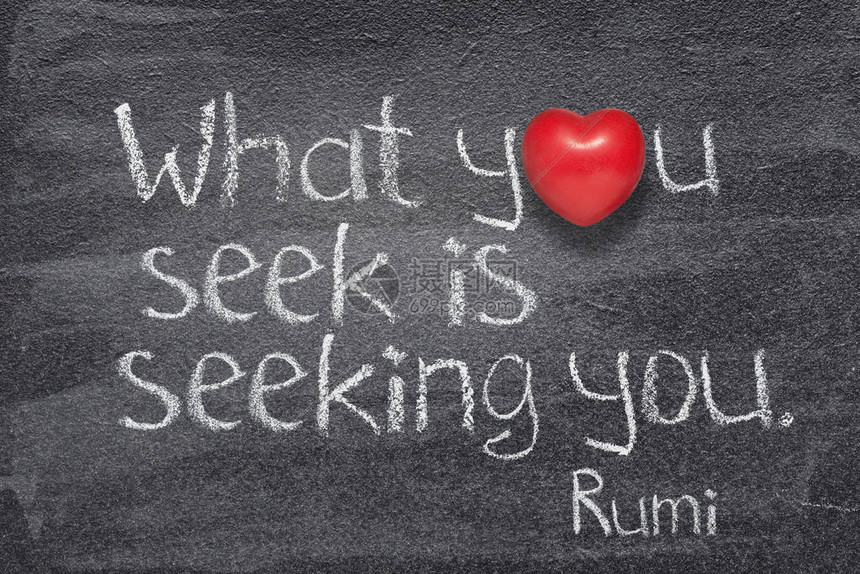 What you
seek is
seeking you.
Rumi
摄图网
699pic.com